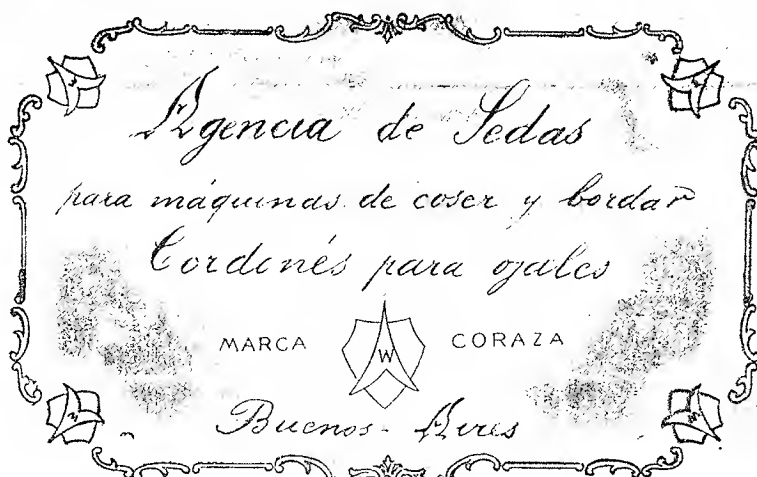 Agencia de Sedas
para máquinas de coser y bordar
Cordonés para ojales
MARCA W CORAZA
Buenos-Aires